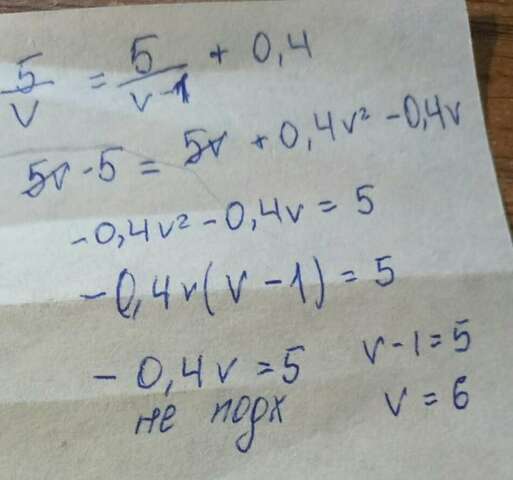 5/v = 5/(v-1) + 0,4
5v - 5 = 5v + 0,4v² - 0,4v
-0,4v² - 0,4v = 5
-0,4v(v - 1) = 5
-0,4v = 5 v - 1 = 5
не подх v = 6